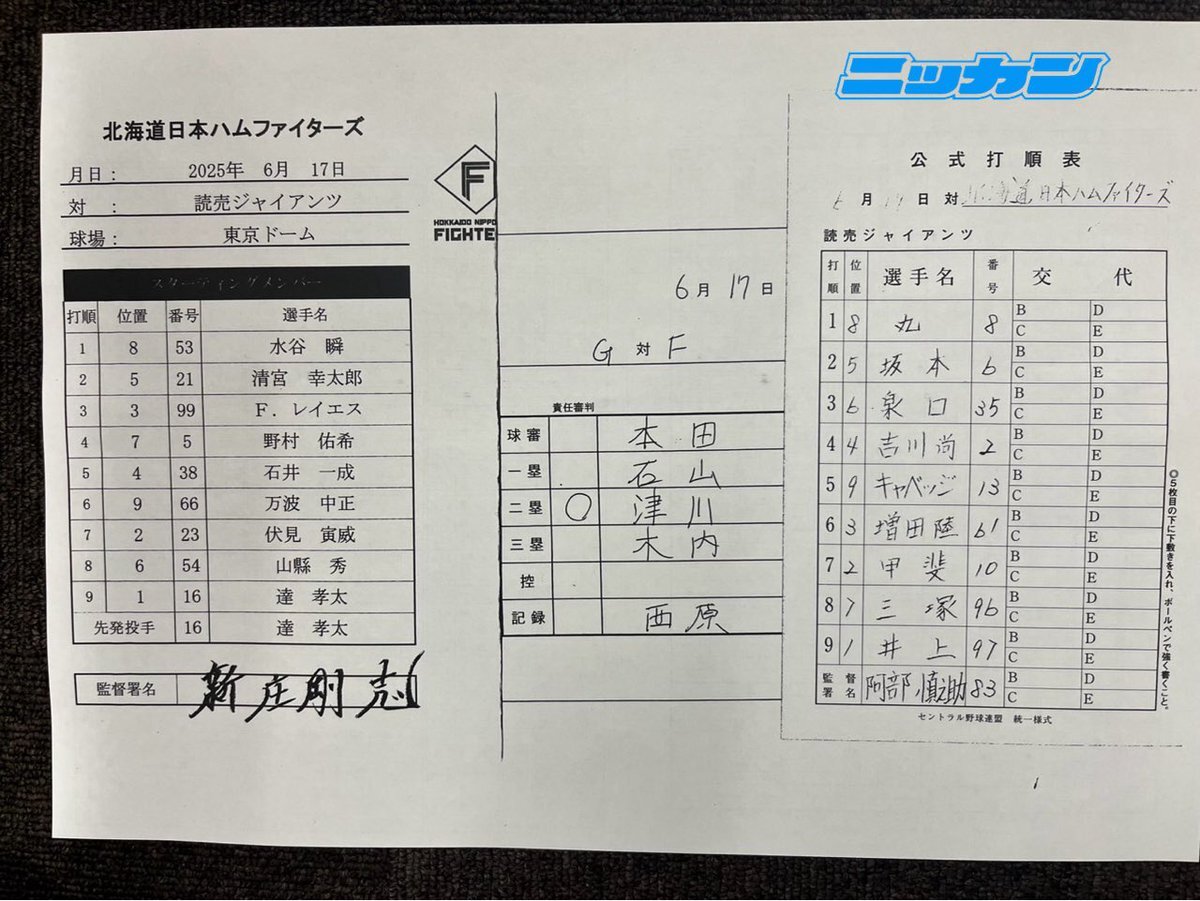 ニッカン
北海道日本ハムファイターズ
月日： 2025年 6月 17日
対 ： 読売ジャイアンツ
球場： 東京ドーム
F
HOKKAIDO NIPPO
FIGHTE
スターティングメンバー
打順 位置 番号 選手名
1 8 53 水谷 瞬
2 5 21 清宮 幸太郎
3 3 99 F．レイエス
4 7 5 野村 佑希
5 4 38 石井 一成
6 9 66 万波 中正
7 2 23 伏見 寅威
8 6 54 山縣 秀
9 1 16 達 孝太
先発投手 16 達 孝太
監督署名 新庄剛志
6月 17日
G 対 F
責任審判
球審 本田
一塁 石山
二塁 ○ 津川
三塁 木内
控
記録 西原
公式打順表
6月 17日 対 北海道日本ハムファイターズ
読売ジャイアンツ
打順 位置 選手名 番号 交代
1 8 丸 8 B D
C E
2 5 坂本 6 B D
C E
3 6 泉口 35 B D
C E
4 4 吉川尚 2 B D
C E
5 9 キャベッジ 13 B D
C E
6 3 増田陸 61 B D
C E
7 2 甲斐 10 B D
C E
8 7 三塚 96 B D
C E
9 1 井上 97 B D
C E
監督署名 阿部慎之助 83 B D
C E
セントラル野球連盟 統一様式
◎5枚目の下に下敷きを入れ、ボールペンで強く書くこと。